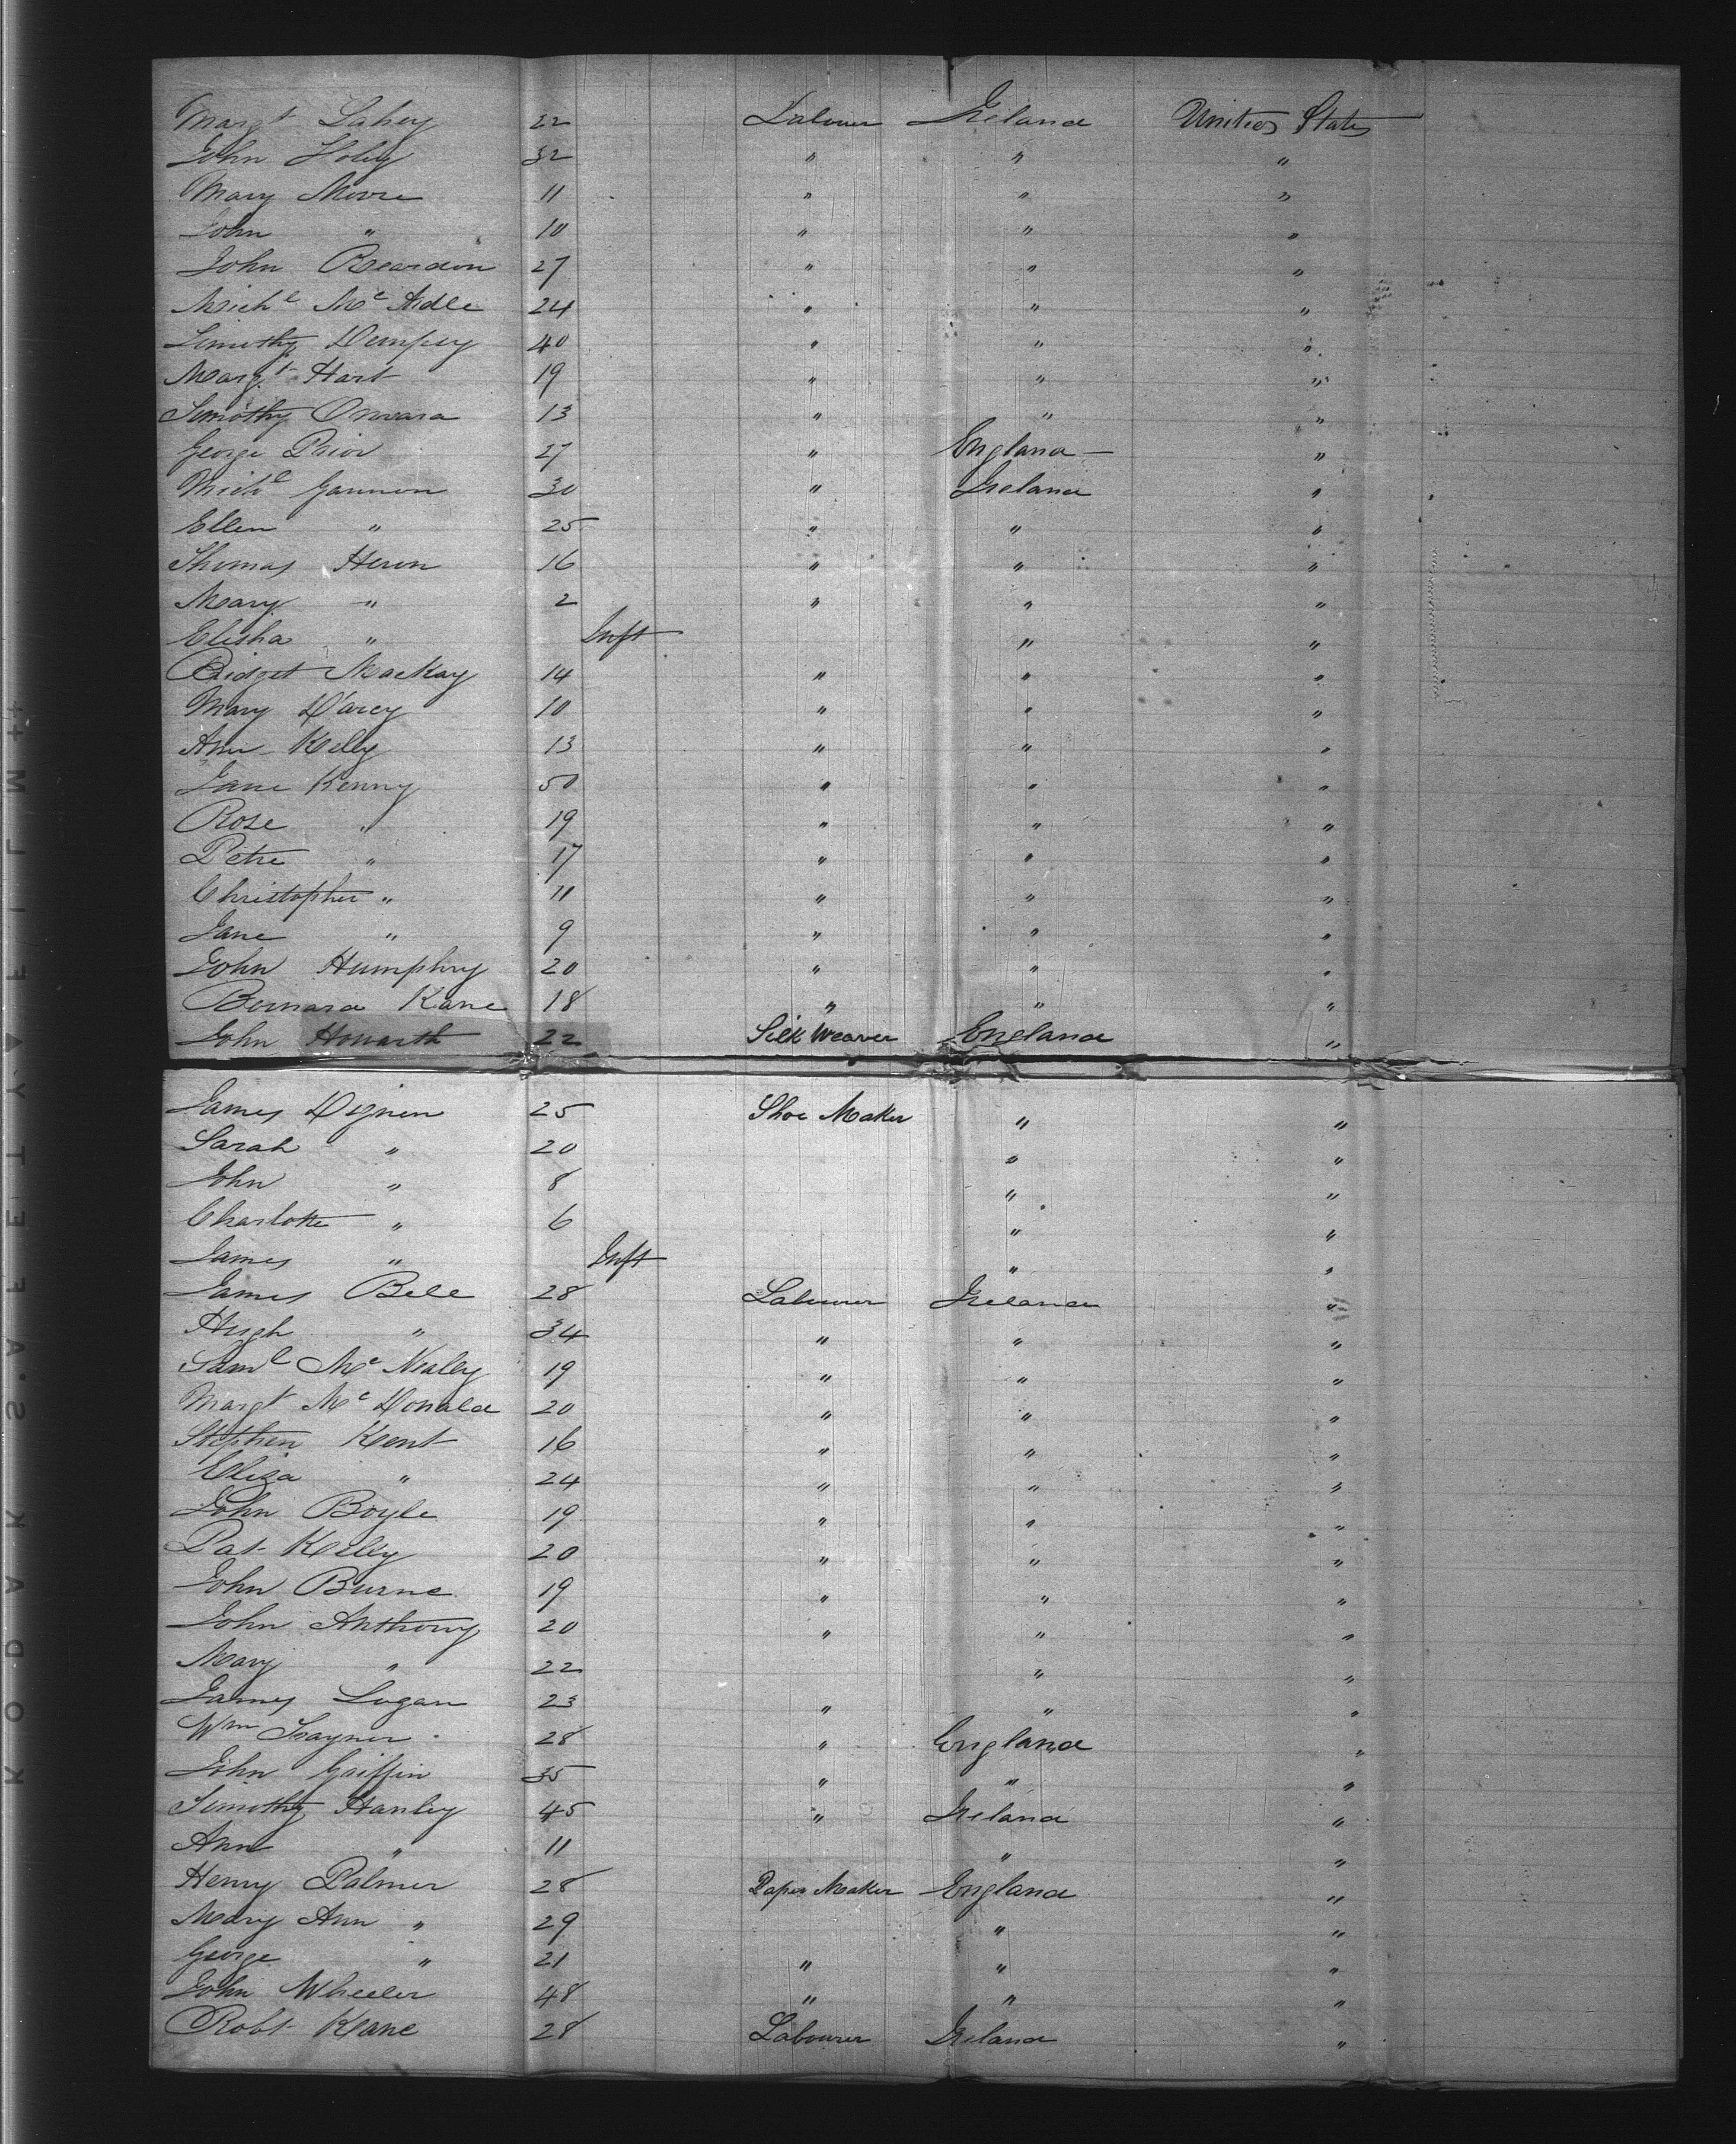 Margt Lahey 22 Labourer Ireland United States
John Foley 32 " " "
Mary Moore 11 " " "
John " 10 " " "
John Reardon 27 " " "
Michl Mc Ardle 24 " " "
Timothy Dempsey 40 " " "
Margt Hart 19 " " "
Timothy 13 " " "
George Prior 27 " England "
Michl Gannon 30 " Ireland "
Ellen " 25 " " "
Thomas Heron 16 " " "
Mary " 2 " " "
Elisha " Inft " "
Bridget MacKay 14 " " "
Mary D'arcy 10 " " "
Ann Kelly 13 " " "
Jane Kenny 50 " " "
Rose " 19 " " "
Peter " 17 " " "
Christopher " 11 " " "
Jane " 9 " " "
John Humphry 20 " " "
Bernard Kane 18 " " "
John Howarth 22 Silk Weaver England "
James Dignen 25 Shoe Maker " "
Sarah " 20 " "
John " 8 " "
Charlotte " 6 " "
James " Inft " "
James Bell 28 Labourer Ireland "
Hugh " 34 " " "
Saml Mc Nealey 19 " " "
Margt Mc Donald 20 " " "
Stephen Kent 16 " " "
Eliza " 24 " " "
John Boyle 19 " " "
Pat Kelly 20 " " "
John Burne 19 " " "
John Anthony 20 " " "
Mary " 22 " "
James Logan 23 " " "
Wm Traynor 28 " England "
John Griffin 35 " " "
Timothy Hanley 45 " Ireland "
Ann " 11 " "
Henry Palmer 28 Paper Maker England "
Mary Ann " 29 " "
George " 21 " " "
John Wheeler 48 " " "
Robt Keane 28 Labourer Ireland "
KODAK S.AFETY FILM